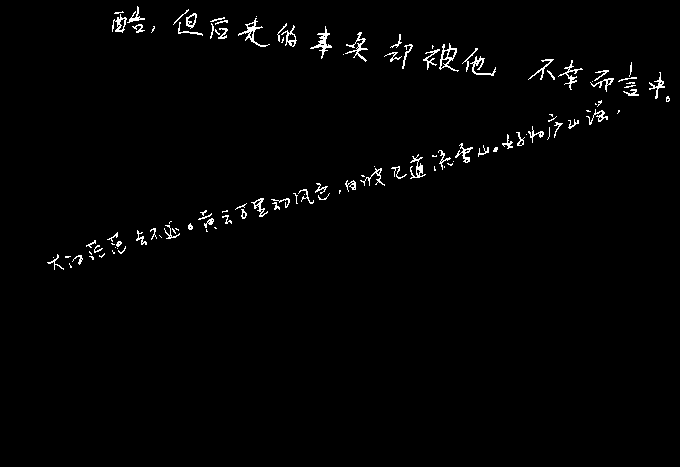 酷，但后来的事实却被他 不幸而言中。
大江茫茫去不还。黄云万里动风色，白波九道流雪山。好为庐山谣，